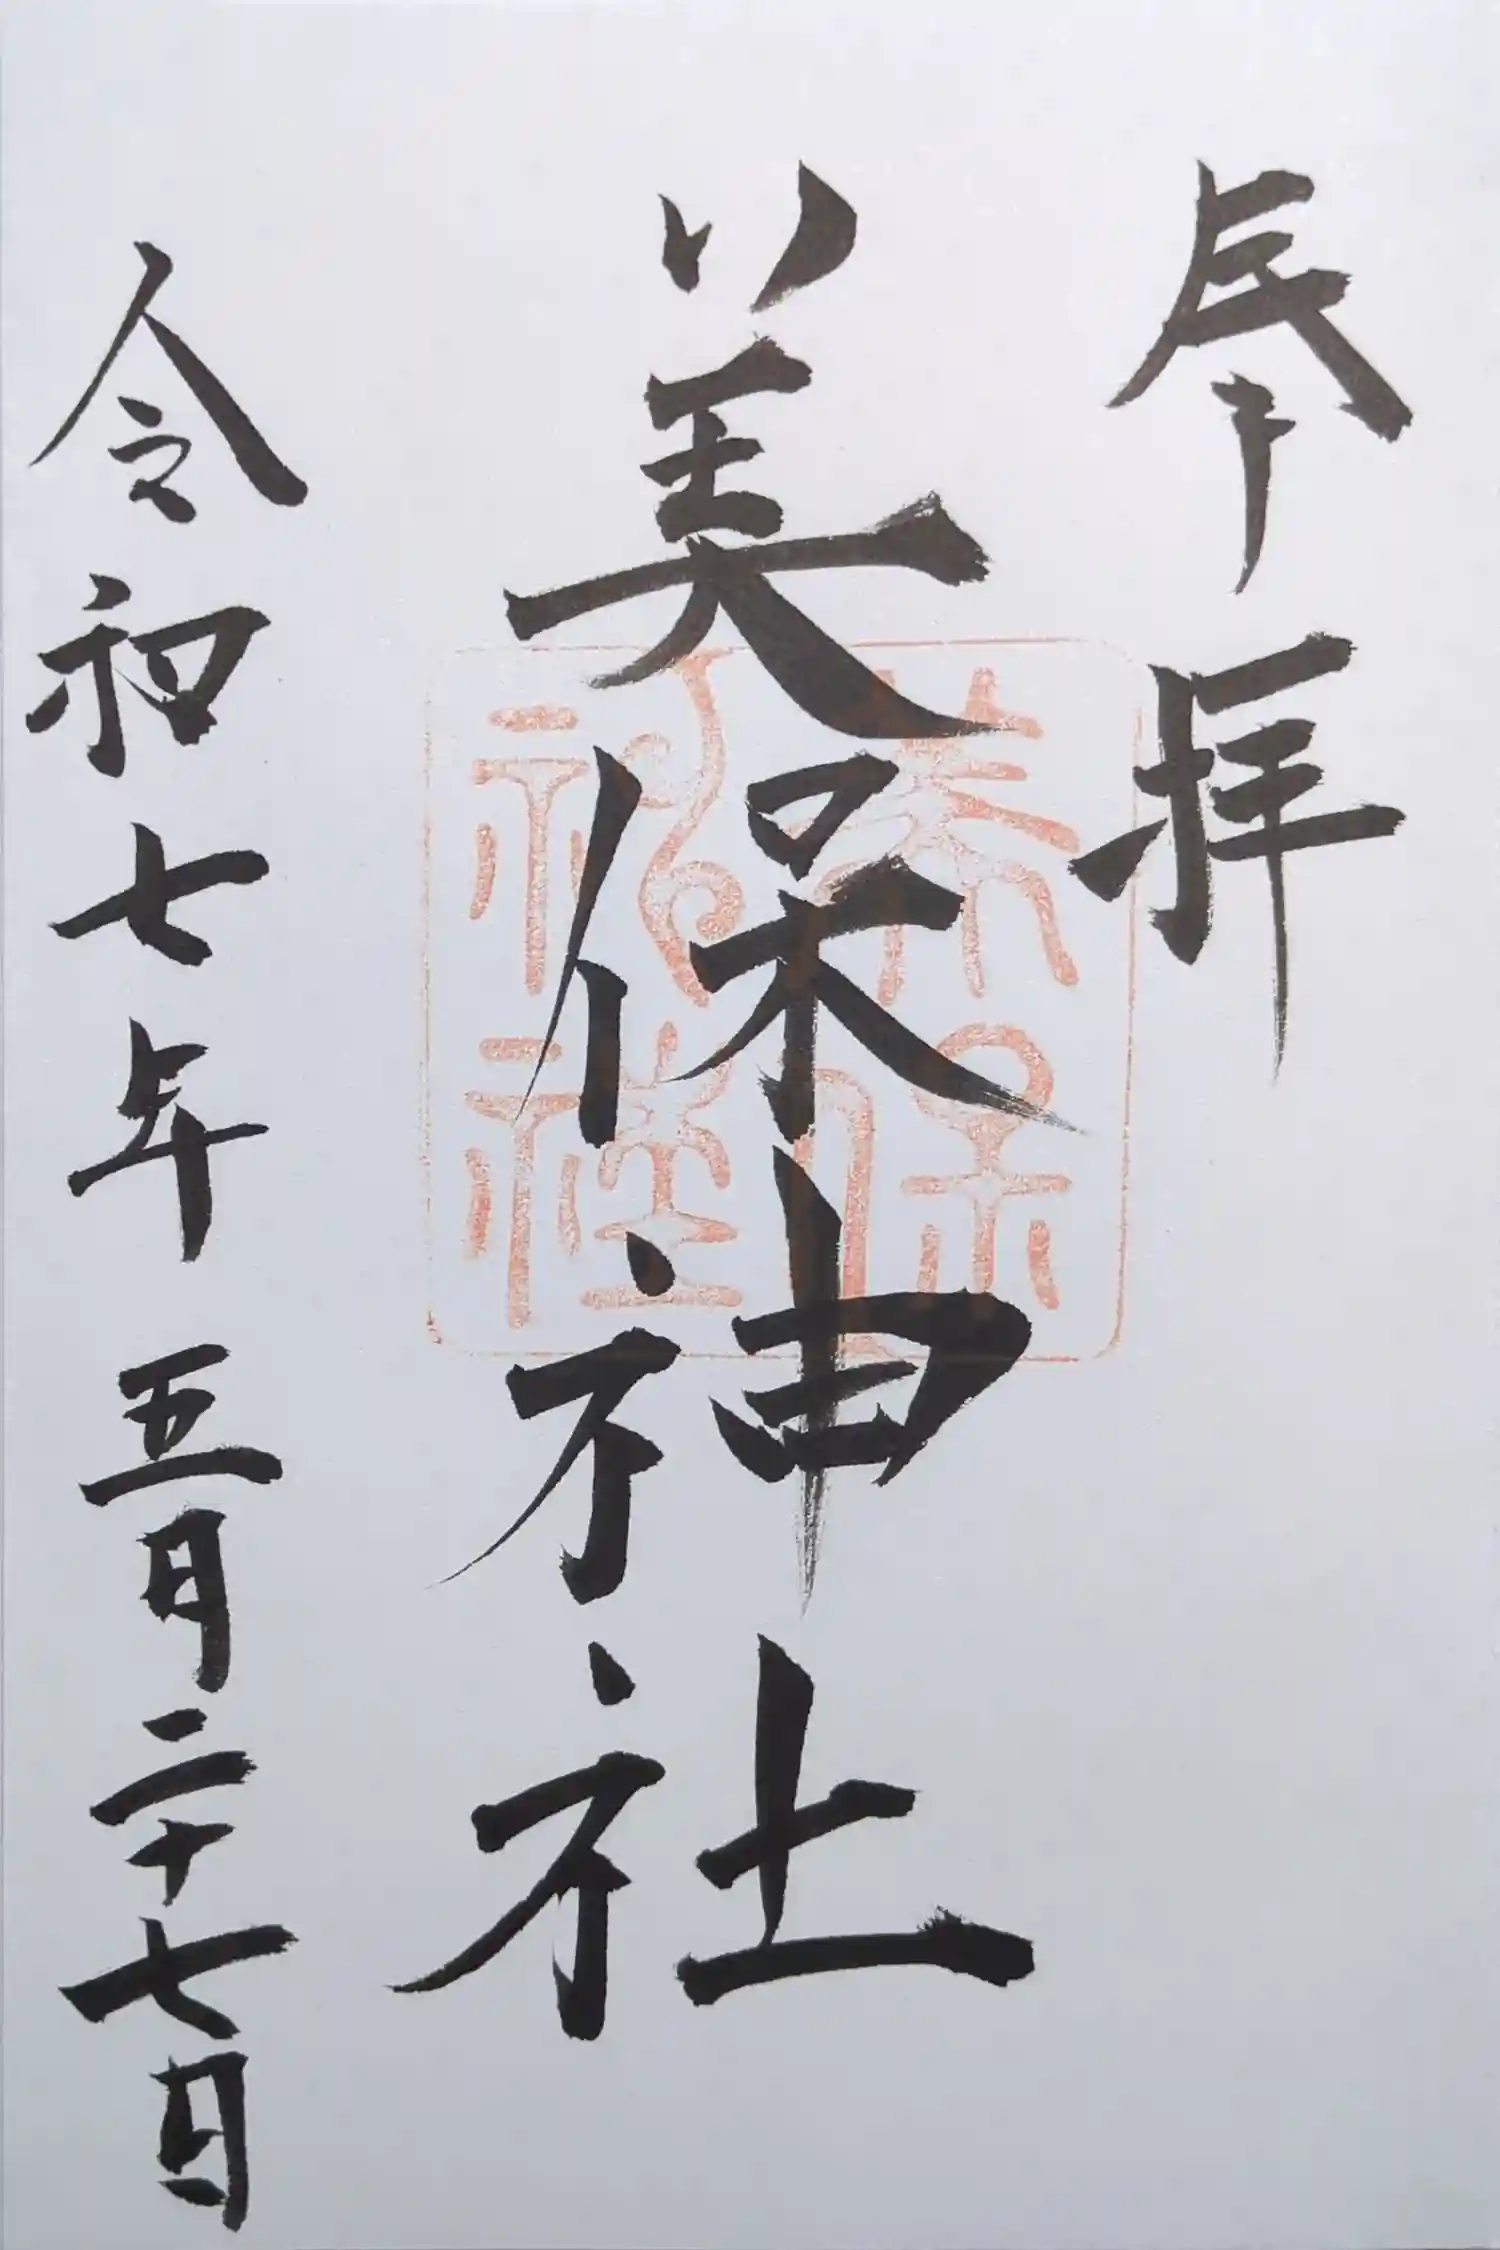 奉拝
美保神社
令和七年五月二十七日
美保神社